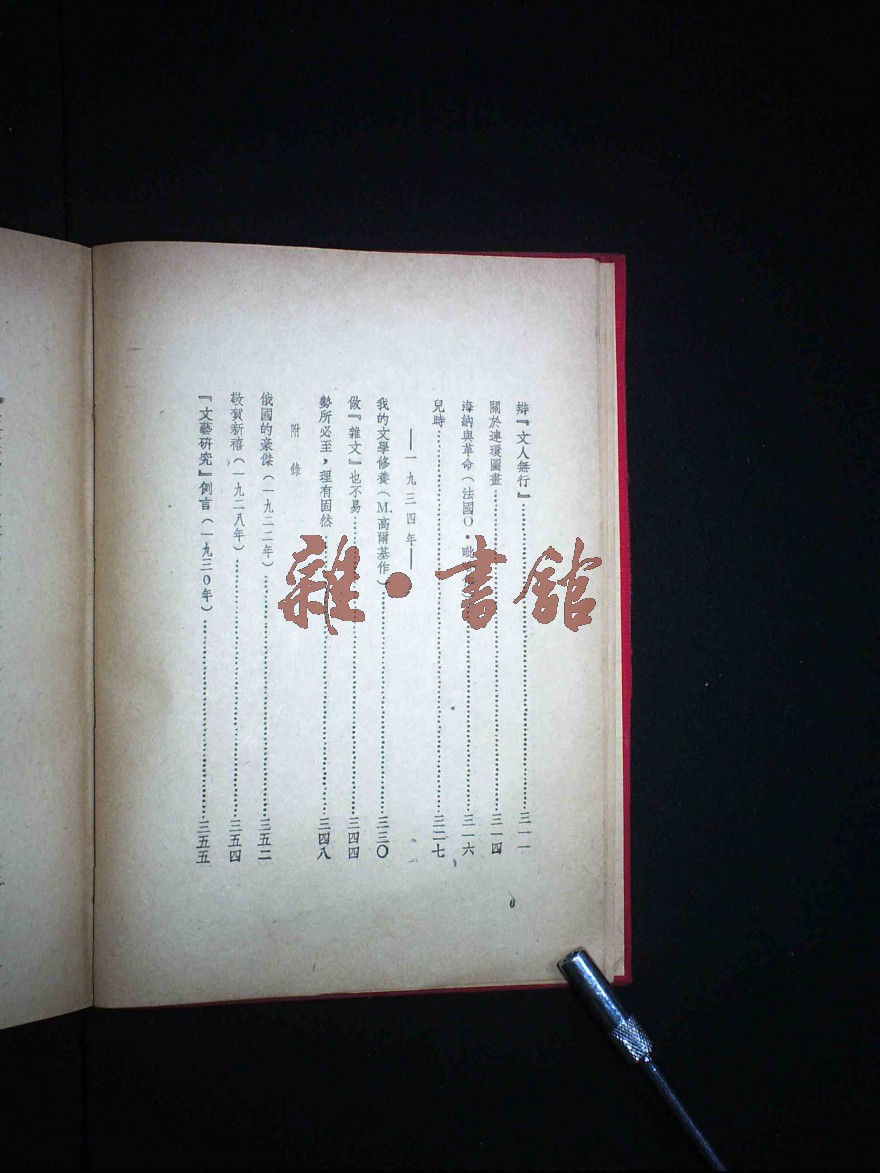 辯『文人無行』……三一一
關於連環圖畫……三一四
海納與革命（法國O·毗……三一六
兒時……三二七
——一九三四年——
我的文學修養（M.高爾基作）……三三〇
做『雜文』也不易……三四四
勢所必至，理有固然……三四八
附錄
俄國的豪傑（一九二二年）……三五二
敬賀新禧（一九二八年）……三五四
『文藝研究』例言（一九三〇年）……三五五
雜·書館